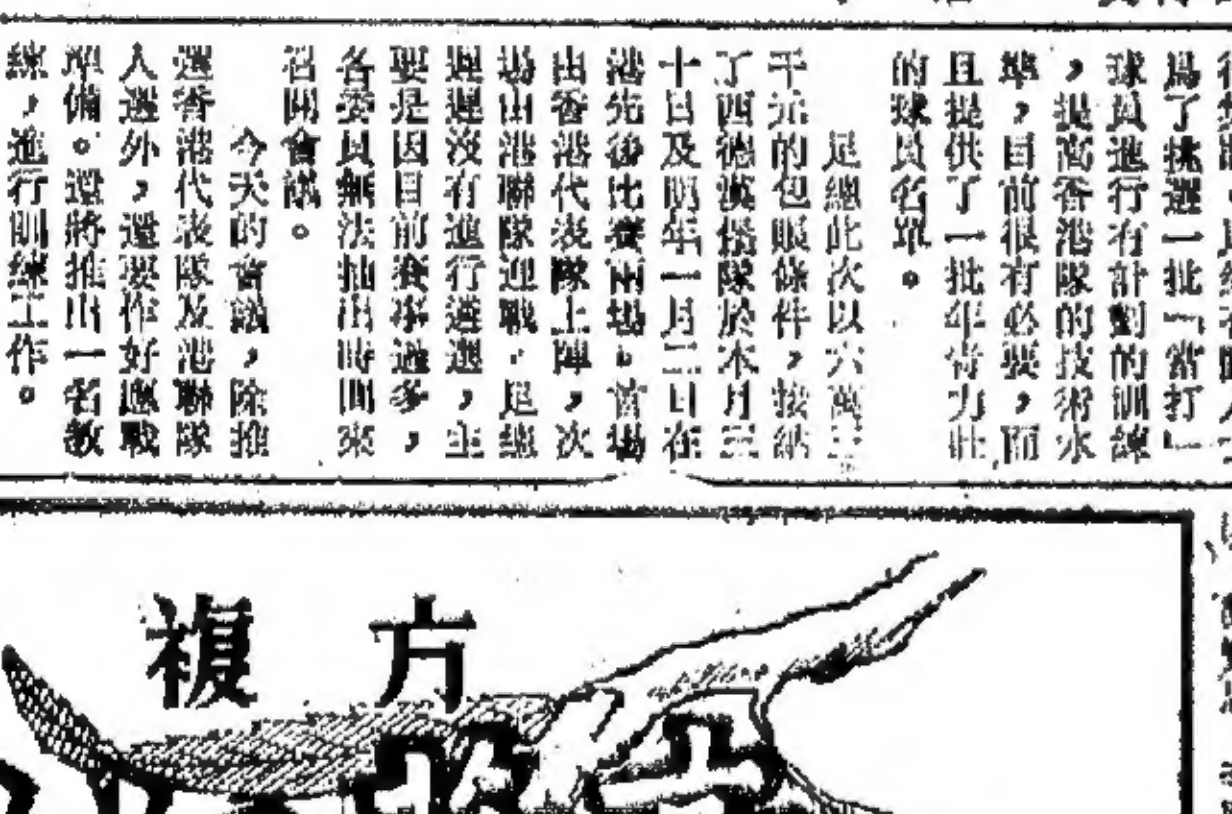 為了挑選一批「當打」
球員進行有計劃的訓練
，提高香港隊的技術水
準，目前很有必要，而
且提供了一批年青力壯
的球員名單。
足總此次以六萬三
千元的包賬條件，接納
了西德漢堡隊於本月三
十日及明年一月二日在
港先後比賽兩場。首場
由香港代表隊上陣，次
場由港聯隊迎戰。足總
遲遲沒有進行遴選，主
要是因目前賽事過多，
各委員無法抽出時間來
召開會議。
今天的會議，除推
選香港代表隊及港聯隊
人選外，還要作好應戰
準備。還將推出一名教
練，進行訓練工作。
複方